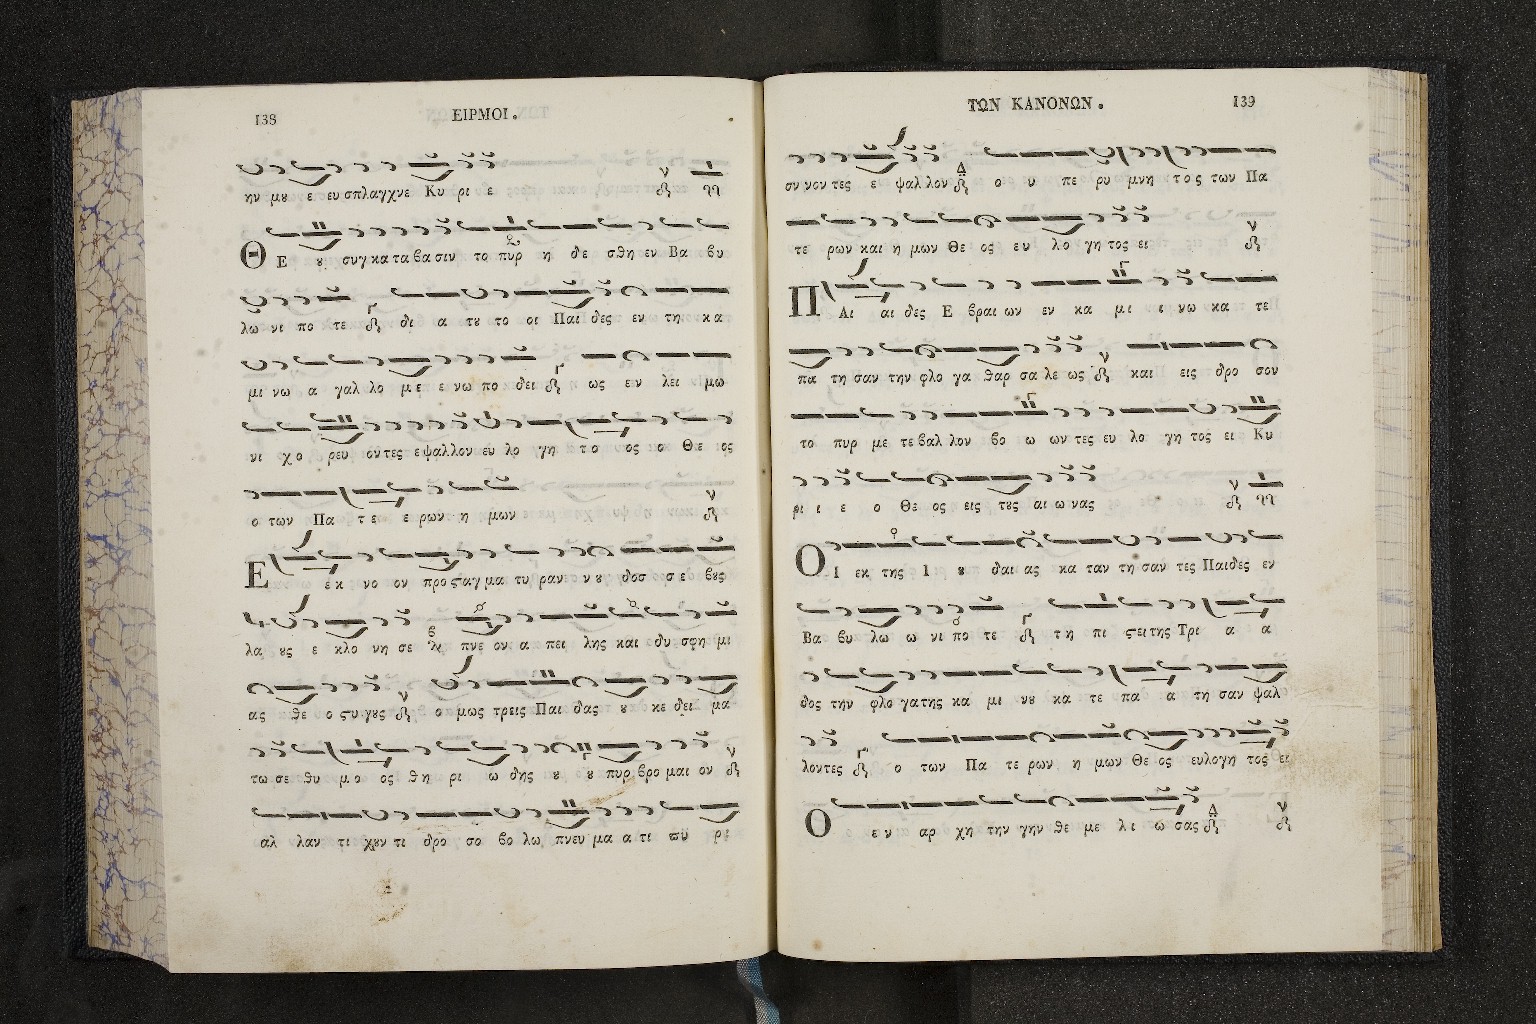 138 ΕΙΡΜΟΙ.
ην μȣ ε ευσπλαγχνε Κυ ρι ε
ΘΕ ȣ συγκαταβασιν το πυρ η δε σθη εν Βα βυ
λω νι πο τε δι α τȣ το οι Παι δες εν τη κα
μι νω α γαλ λο με ε νω πο δει ως εν λει μω
νι χο ρευ οντες εψαλλον ευ λο γη το ος ο Θε ος
ο των Πα τε ε ρων η μων
Ε εκ νο ον προςαγμα τυ ραν νȣ δυσ σε βȣς
λα ȣς ε κλο νη σε πνε ον α πει λης και δυ σφη μι
ας θε ο ςυγȣς ο μως τρεις Παι δας ȣ κε δει μα
τω σε θυ μο ος θη ρι ω δης ȣ ȣ πυρ βρο μαι ον
αλ λαν τι χȣν τι δρο σο βο λω πνευ μα α τι πυ ρι
ΤΩΝ ΚΑΝΟΝΩΝ. 139
συ νον τες ε ψαλλον ο υ πε ρυ μνη τος των Πα
τε ρων και η μων Θε ος ευ λο γη τος ει
ΠΑι αι δες Ε βραι ων εν κα μι ι νω κα τε
πα τη σαν την φλο γα θαρ σα λε ως και εις δρο σον
το πυρ με τε βαλ λον βο ω ων τες ευ λο γη τος ει Κυ
ρι ι ε ο Θε ος εις τȣς αι ω νας
ΟΙ εκ της Ι ȣ δαι ας κα ταν τη σαν τες Παιδες εν
Βα βυ λω ω νι πο τε τη πι ςει της Τρι α α
δος την φλο γα της κα μι νȣ κα τε πα α τη σαν ψαλ
λοντες ο των Πα τε ρων η μων Θε ος ευλογη τος ει
Ο εν αρ χη την γην θε με λι ω σας